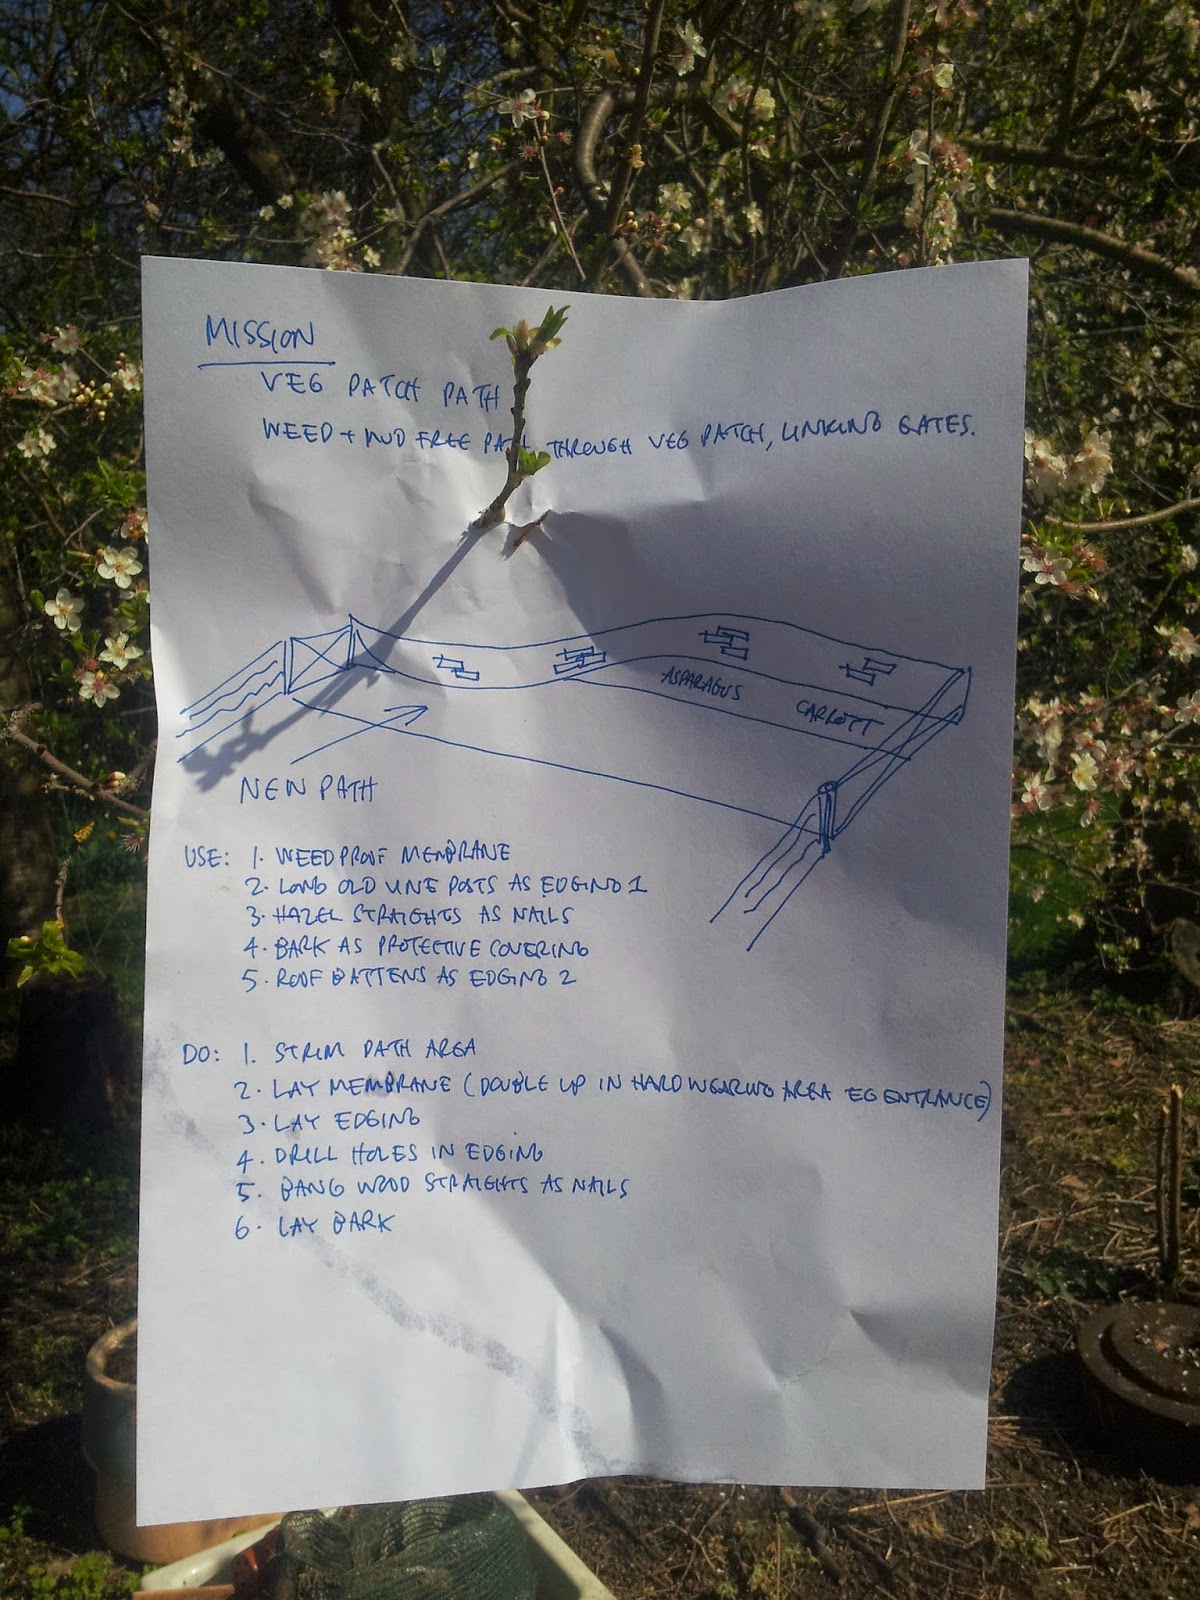 MISSION
VEG PATCH PATH
WEED + MUD FREE PATH THROUGH VEG PATCH, LINKING GATES.
ASPARAGUS
CARROTT
NEW PATH
USE: 1. WEEDPROOF MEMBRANE
2. LONG OLD VINE POSTS AS EDGING 1
3. HAZEL STRAIGHTS AS NAILS
4. BARK AS PROTECTIVE COVERING
5. ROOF BATTENS AS EDGING 2
DO: 1. STRIM PATH AREA
2. LAY MEMBRANE (DOUBLE UP IN HARD WEARING AREA EG ENTRANCE)
3. LAY EDGING
4. DRILL HOLES IN EDGING
5. BANG WOOD STRAIGHTS AS NAILS
6. LAY BARK